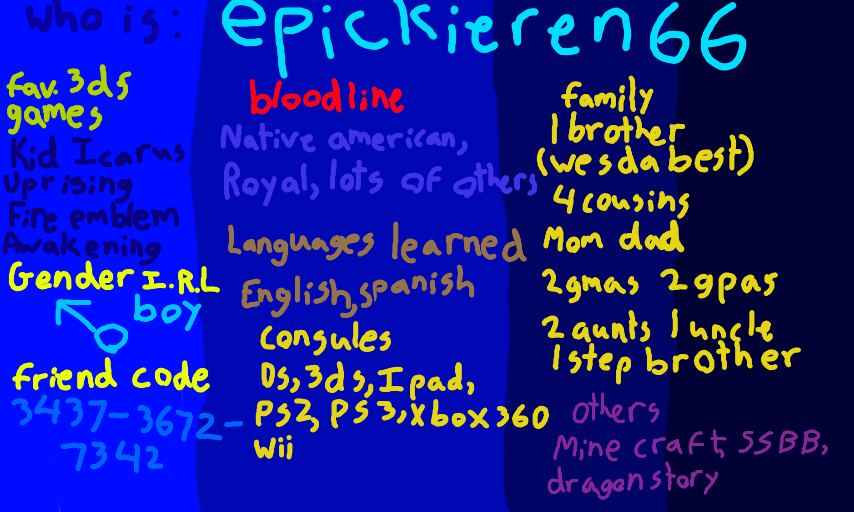 who is: epickieren66
fav. 3ds
games
Kid Icarus
uprising
Fire emblem
Awakening
Gender I.R.L
boy
friend code
3437-3672-
7342
bloodline
Native american,
Royal, lots of others
Languages learned
English, spanish
consules
Ds, 3ds, Ipad,
PS2, PS3, Xbox 360
Wii
family
1 brother
(wesdabest)
4 cousins
Mom dad
2 gmas 2 gpas
2 aunts 1 uncle
1 step brother
others
Mine craft, SSBB,
dragon story